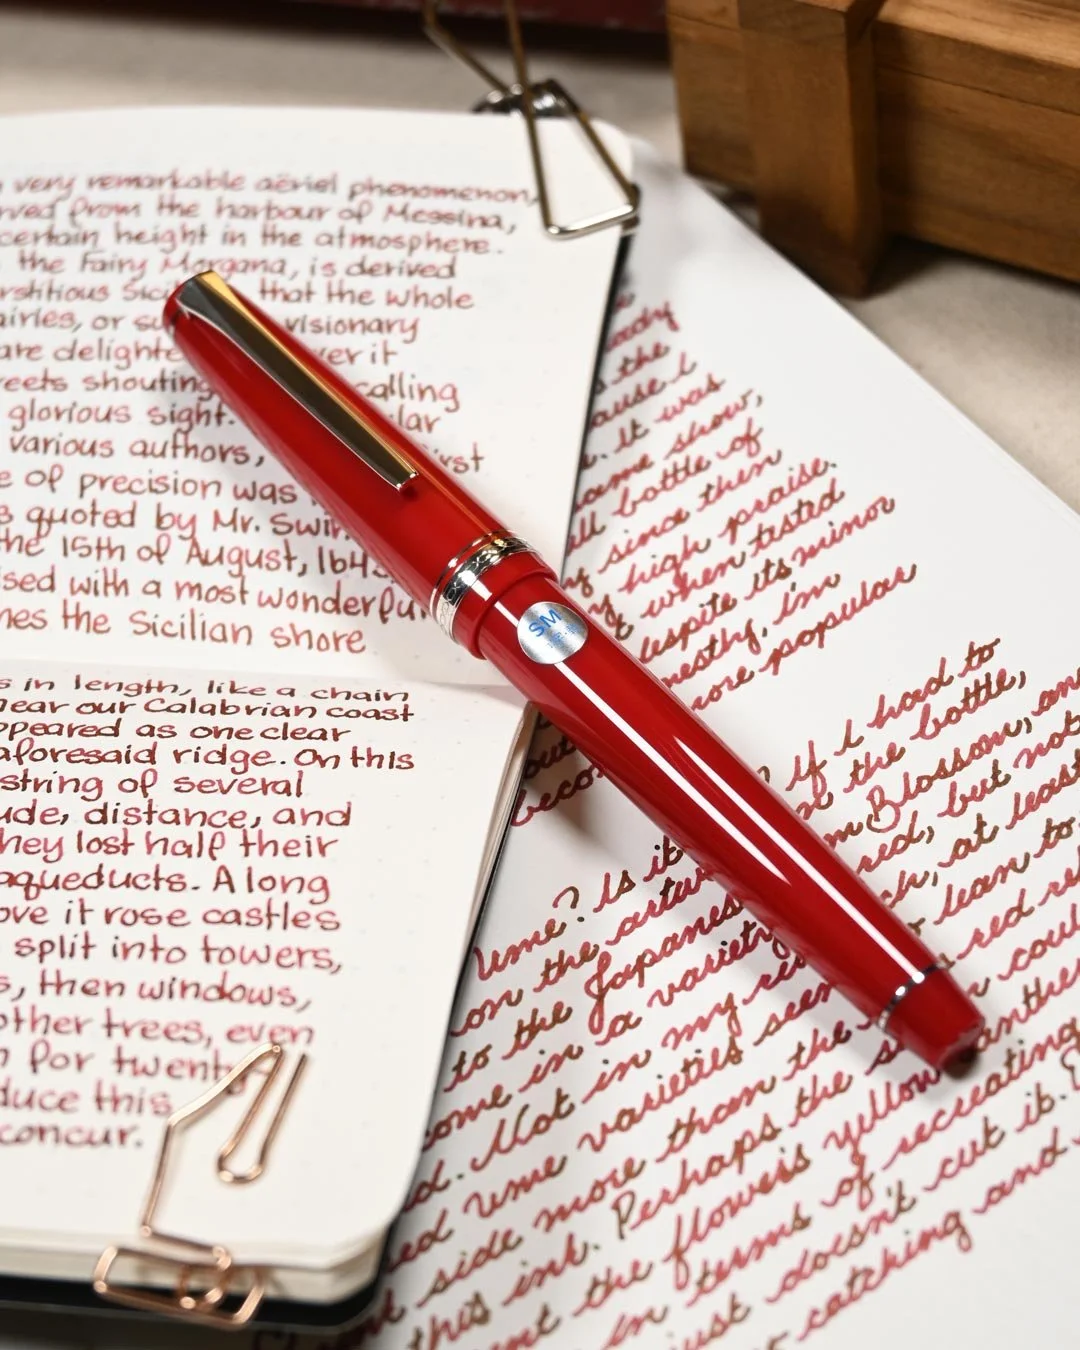 very remarkable aëriel phenomenon,
from the harbour of Messina,
certain height in the atmosphere.
the Fairy Morgana, is derived
that the whole
or visionary
are delighte ver it
reets shouting calling
glorious sight. lar
various authors, irst
e of precision was
s quoted by Mr. Swin
the 15th of August, 164
ised with a most wonderful
nes the Sicilian shore
s in length, like a chain
near our Calabrian coast
ppeared as one clear
aforesaid ridge. On this
string of several
ude, distance, and
they lost half their
aqueducts. A long
ove it rose castles
split into towers,
s, then windows,
other trees, even
for twenty
duce this
concur.
SM
eady
the
ause I
. It was
same show,
ll bottle of
since then
high praise.
t when tested
despite its minor
nesthy, i'm
ore popular
becom
if I had to
the bottle,
m Blossom, an
red, but not
ch, at least
lean to
red re
n coul
anthe
Ume? Is it
on the artw
to the Japanes
come in a variety
d. Not in my re
ed ume varieties seem
side more than the s
this ink. Perhaps the
ent the flower's yellow
in terms of recreating
just doesn't cut it.
catching and